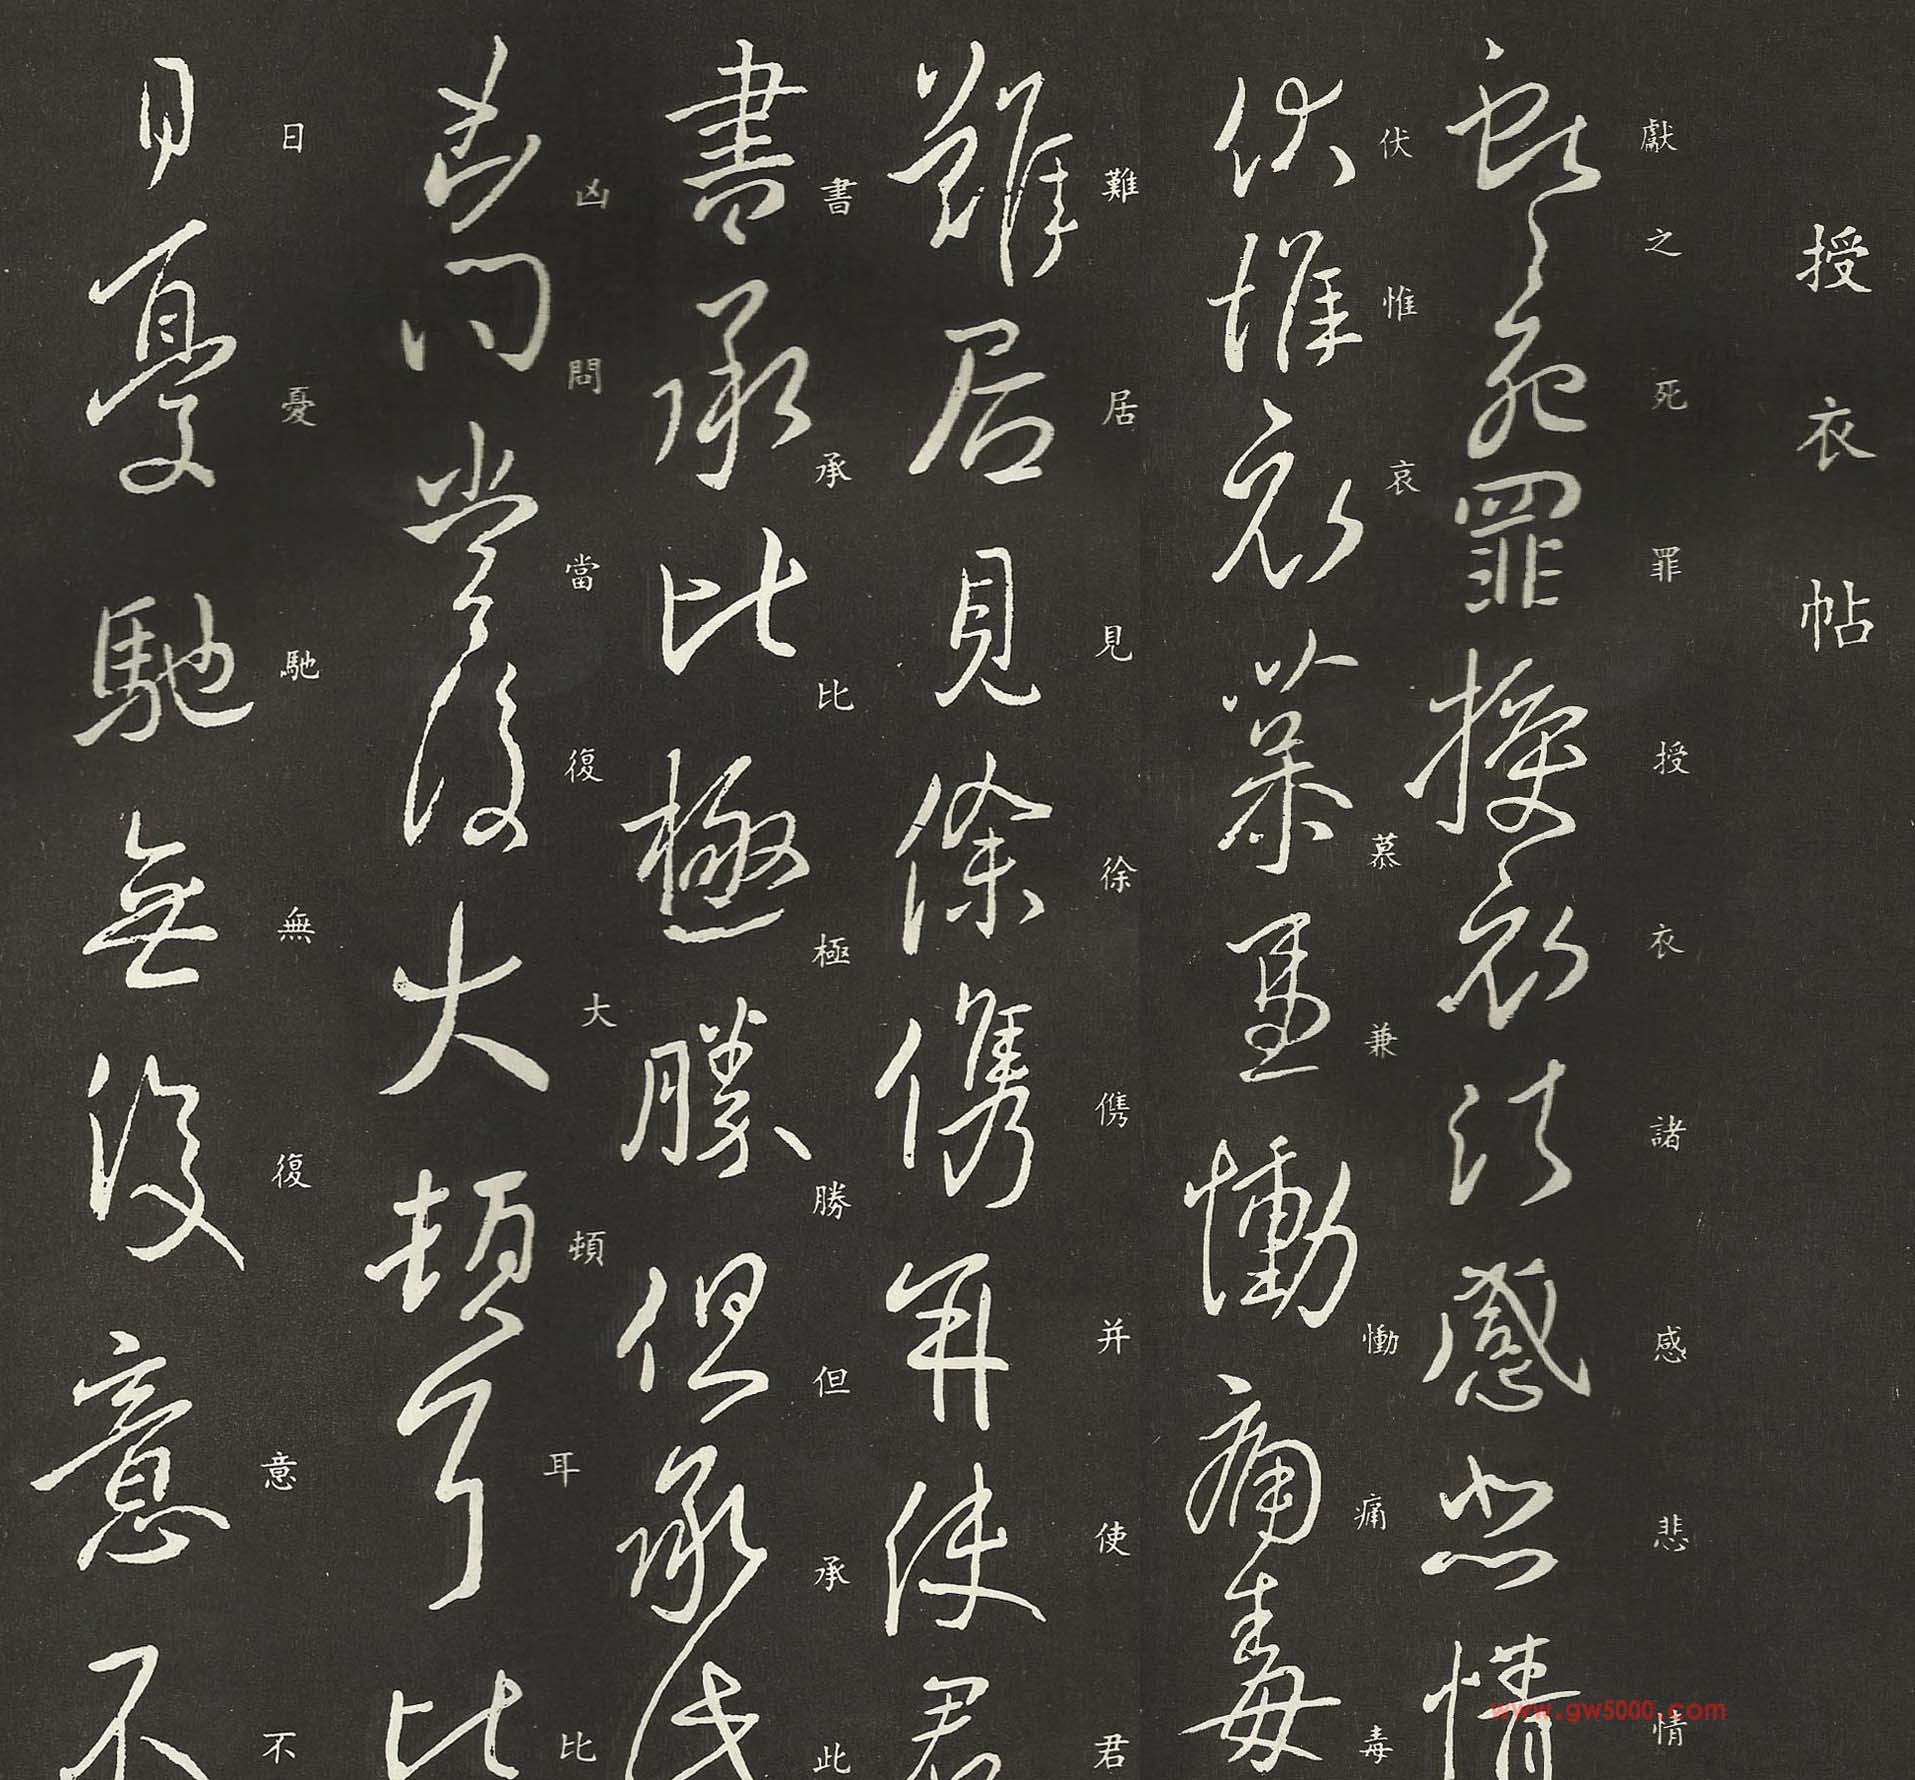 授衣帖
獻之死罪授衣諸感悲情
伏惟哀慕兼慟痛毒
難居見徐儁并使君
書承比極勝但承此
凶問當復大頓耳比
日憂馳無復意不
www.gw5000.com